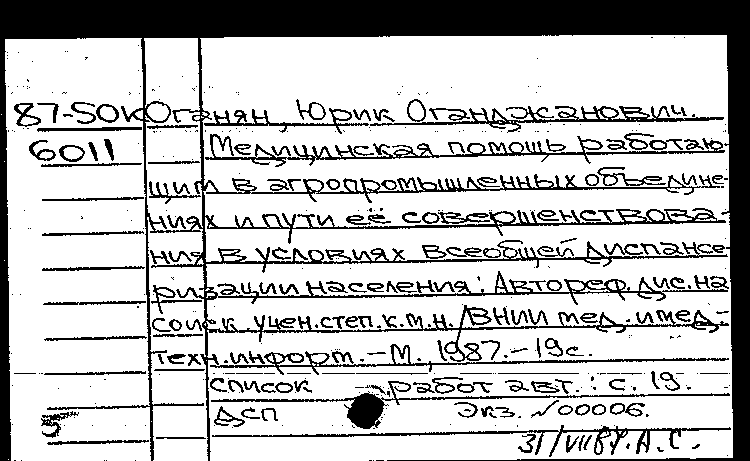 87-50К Оганян, Юрик Оганджанович.
6011 Медицинская помощь работаю-
щим в агропромышленных объедине-
ниях и пути её совершенствова-
ния в условиях всеобщей диспансе-
ризации населения: Автореф. дис. на
соиск. учен. степ. к.м.н. / ВНИИ мед. и мед.-
техн. информ. - М., 1987. - 19 с.
список работ авт.: с. 19.
ДСП Экз. №00006.
5
31/VII 87. А.С.